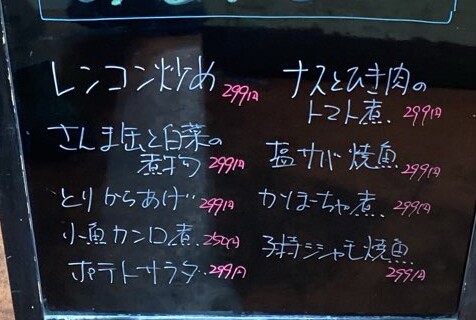 レンコン炒め 299円
さんま缶と白菜の
煮物 299円
とりからあげ 299円
小魚カンロ煮 250円
ポテトサラダ 299円
ナスとひき肉の
トマト煮 299円
塩サバ焼魚 299円
かぼーちゃ煮 299円
子持シシャモ焼魚
299円